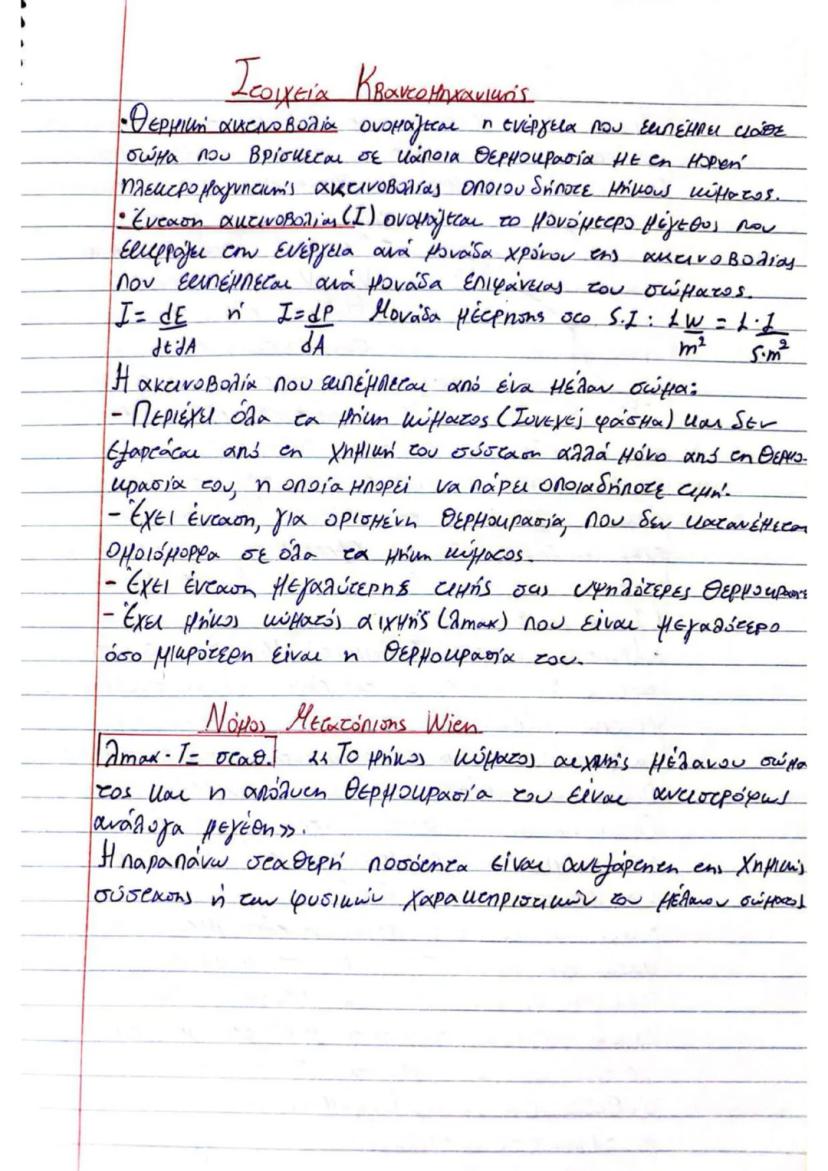 Στοιχεία Κβαντομηχανικής
• Θερμική ακτινοβολία ονομάζεται η ενέργεια που εκπέμπει κάθε
σώμα που βρίσκεται σε κάποια θερμοκρασία με τη μορφή
ηλεκτρομαγνητικής ακτινοβολίας οποιουδήποτε μήκους κύματος.
• Ένταση ακτινοβολίας (I) ονομάζεται το μονόμετρο μέγεθος που
εκφράζει την ενέργεια ανά μονάδα χρόνου της ακτινοβολίας
που εκπέμπεται ανά μονάδα επιφάνειας του σώματος.
I = dE/dtdA ή I = dP/dA Μονάδα μέτρησης στο S.I : 1 W/m² = 1 · J/s·m²
Η ακτινοβολία που εκπέμπεται από ένα μέλαν σώμα:
- Περιέχει όλα τα μήκη κύματος (Συνεχές φάσμα) και δεν
εξαρτάται από τη χημική του σύσταση αλλά μόνο από τη θερμο-
κρασία του, η οποία μπορεί να πάρει οποιαδήποτε τιμή.
- Έχει ένταση, για ορισμένη θερμοκρασία, που δεν κατανέμεται
ομοιόμορφα σε όλα τα μήκη κύματος.
- Έχει ένταση μεγαλύτερης τιμής στις υψηλότερες θερμοκρασίες
- Έχει μήκος κύματός αιχμής (λmax) που είναι μεγαλύτερο
όσο μικρότερη είναι η θερμοκρασία του.
Νόμος Μετατόπισης Wien
λmax · T = σταθ. «Το μήκος κύματος αιχμής μέλανου σώμα
τος και η απόλυτη θερμοκρασία του είναι αντιστρόφως
ανάλογα μεγέθη».
Η παραπάνω σταθερή ποσότητα είναι ανεξάρτητη της χημικής
σύστασης ή των φυσικών χαρακτηριστικών του μέλανου σώματος